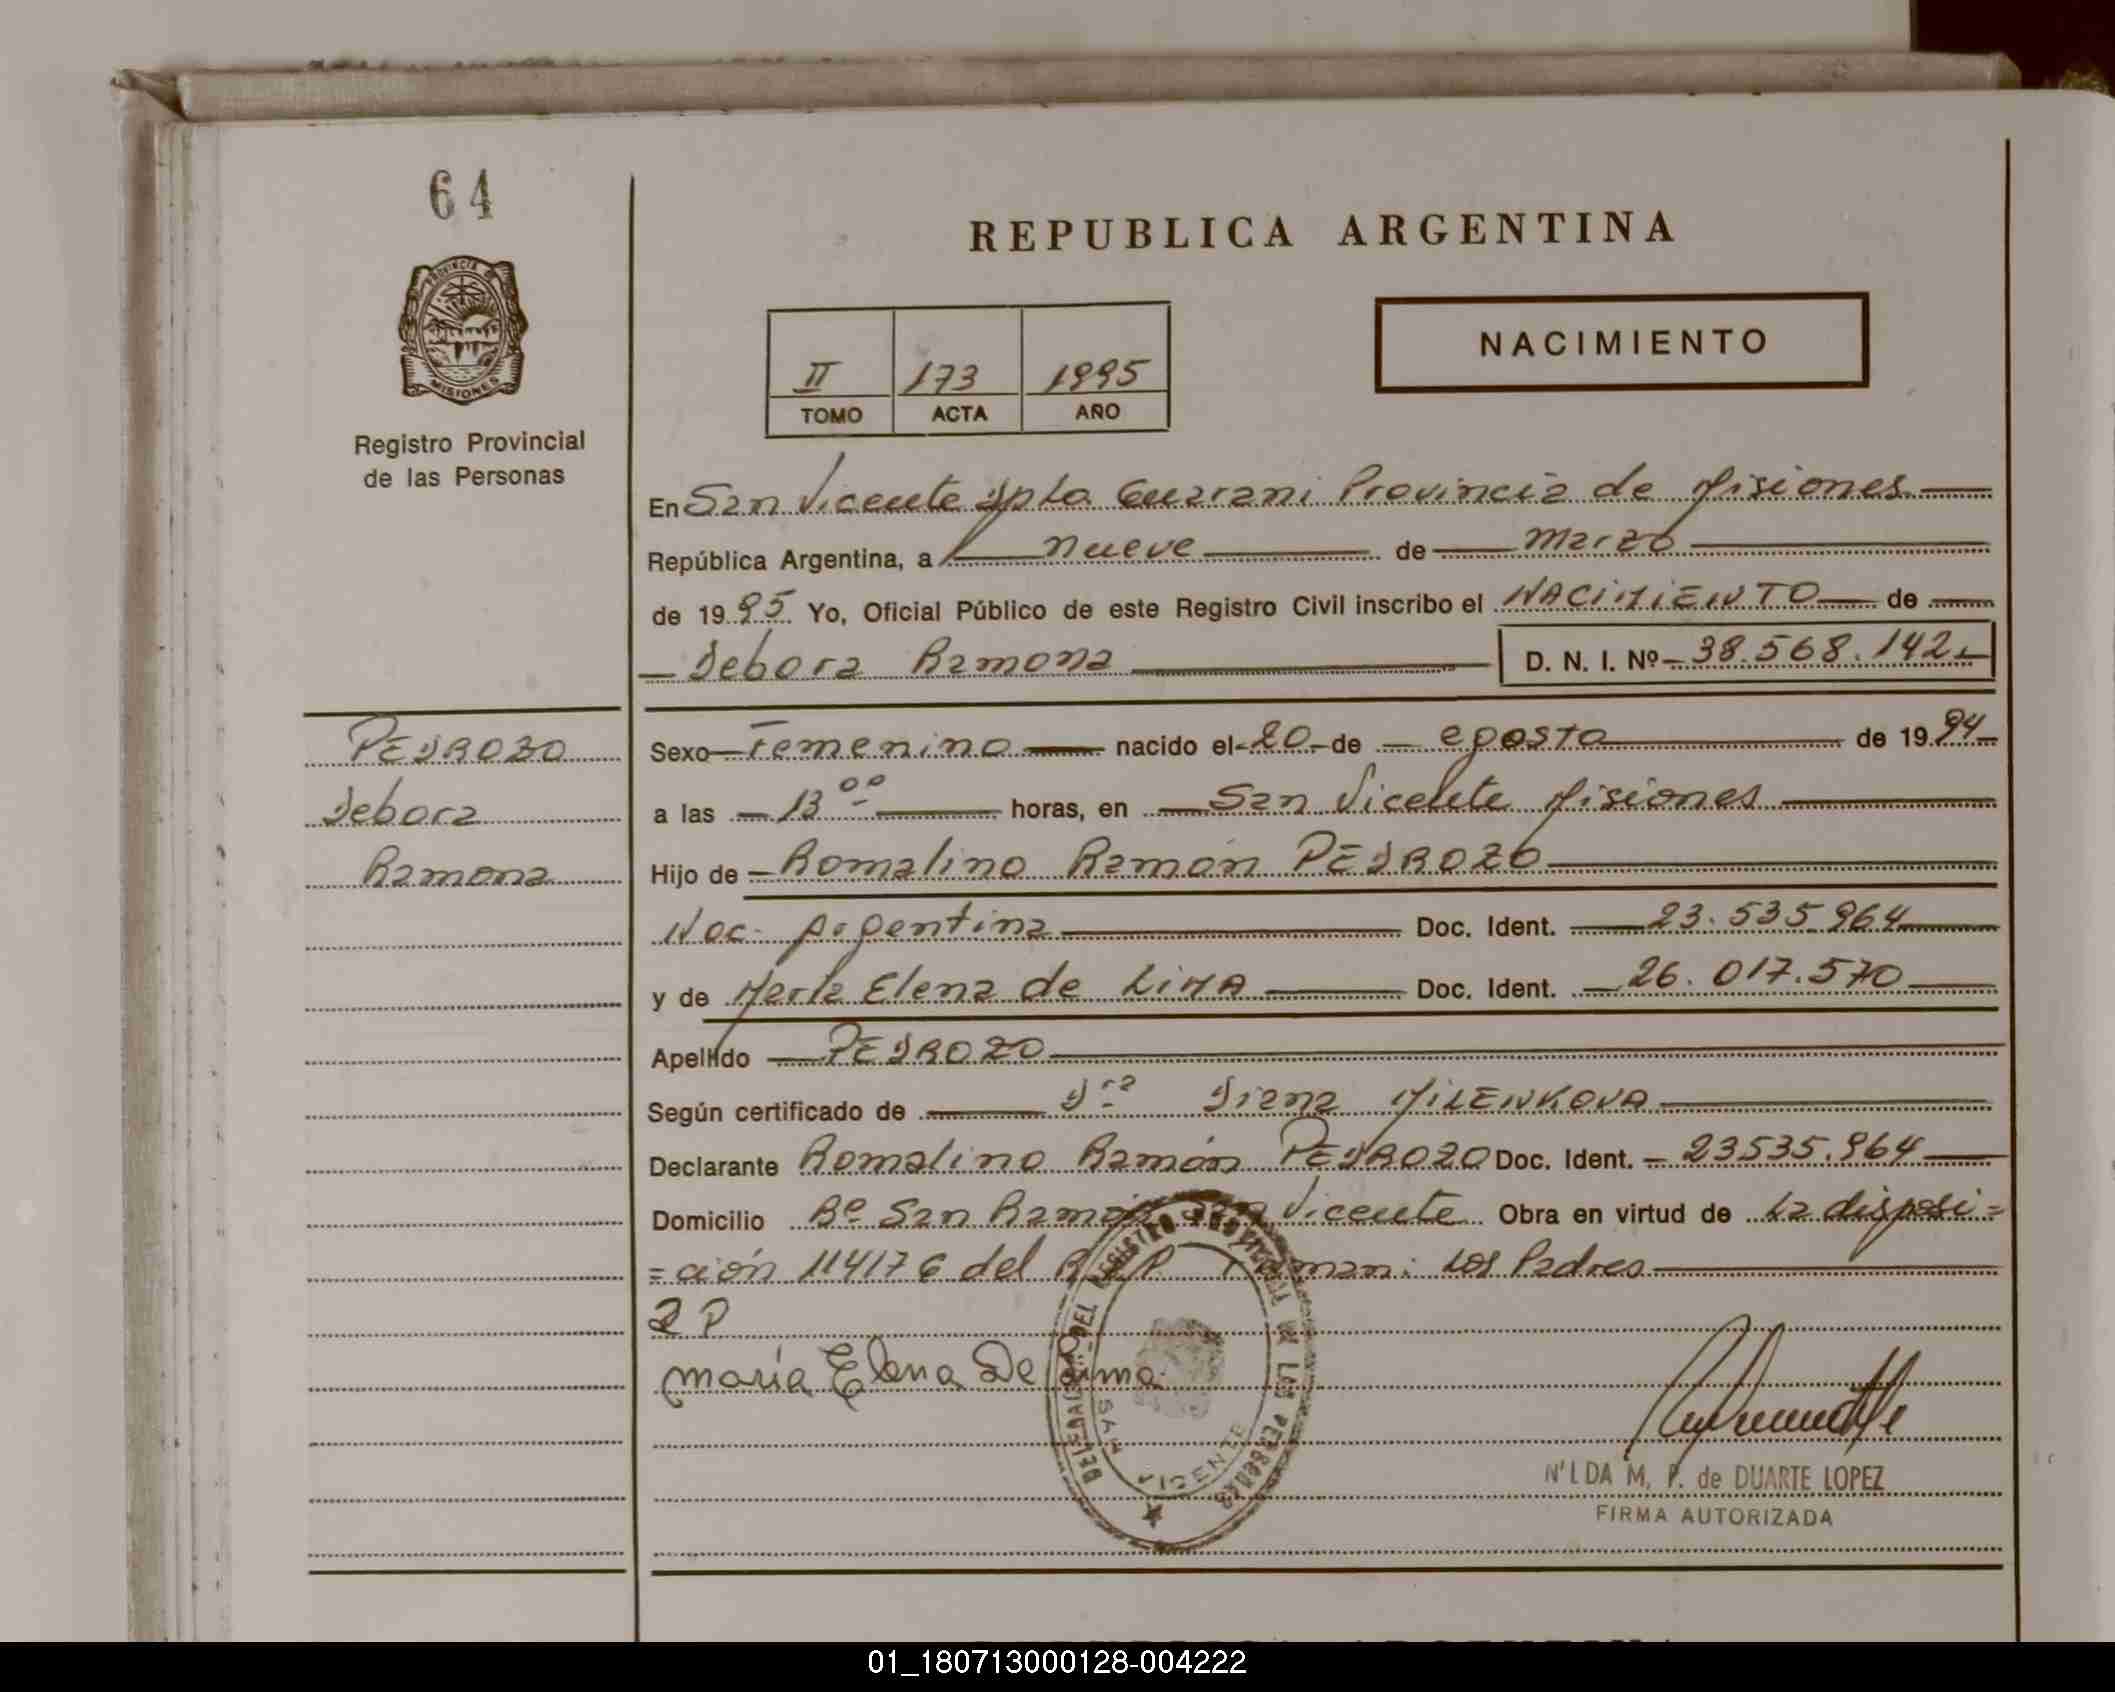 64
REPUBLICA ARGENTINA
PROVINCIA DE
MISIONES
NACIMIENTO
II 173 1995
TOMO ACTA AÑO
Registro Provincial
de las Personas
En San Vicente Dpto Guarani Provincia de Misiones
República Argentina, a nueve de Marzo
de 1995 Yo, Oficial Público de este Registro Civil inscribo el NACIMIENTO de
Debora Ramona D. N. I. Nº 38.568.142
PEDROZO
Debora
Ramona
Sexo Femenino nacido el 20 de agosto de 1994
a las 13 00 horas, en San Vicente Misiones
Hijo de Romalino Ramón PEDROZO
Nac. Argentina Doc. Ident. 23.535.964
y de María Elena de LIMA Doc. Ident. 26.017.570
Apellido PEDROZO
Según certificado de Dra Diana MILENKOVA
Declarante Romalino Ramón PEDROZO Doc. Ident. 23535.964
Domicilio Bº San Ramón San Vicente Obra en virtud de la disposi=
=ción 114176 del Firman: los Padres
R P
maria Elena De Lima
DELEGACION DEL REGISTRO PROVINCIAL DE LAS PERSONAS
SAN VICENTE
NILDA M. P. de DUARTE LOPEZ
FIRMA AUTORIZADA
01_180713000128-004222